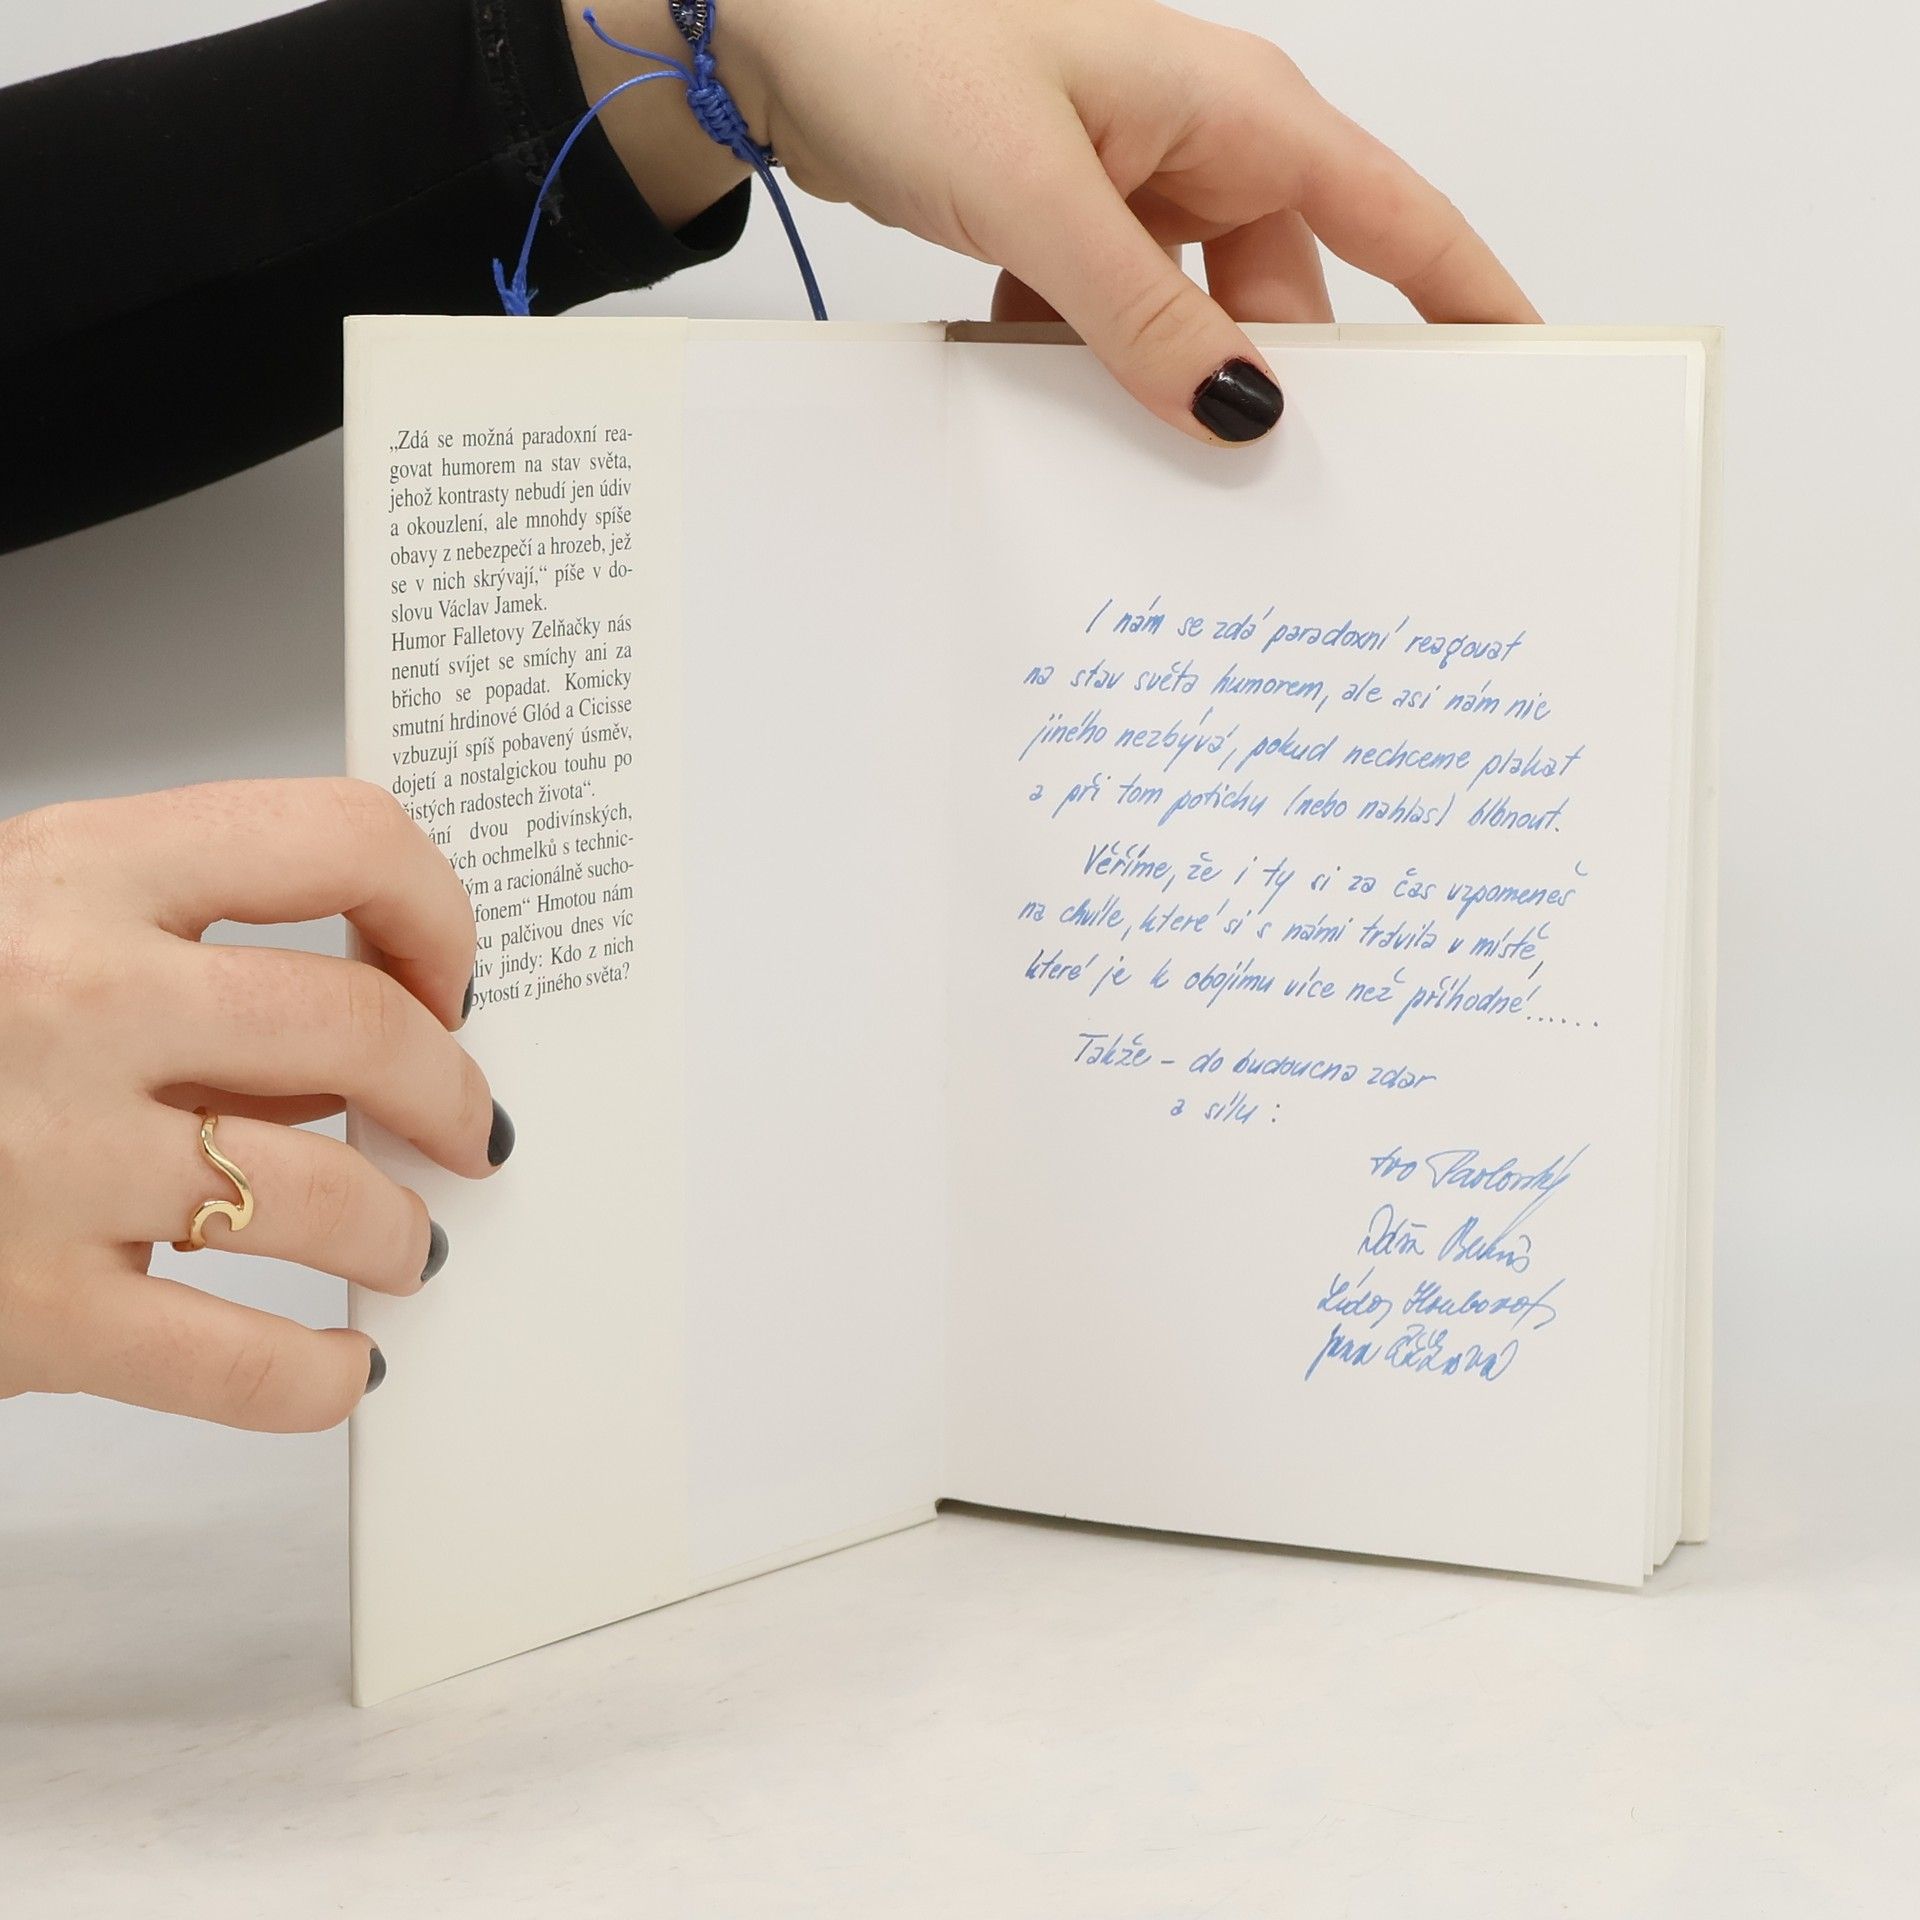 „Zdá se možná paradoxní rea-
govat humorem na stav světa,
jehož kontrasty nebudí jen údiv
a okouzlení, ale mnohdy spíše
obavy z nebezpečí a hrozeb, jež
se v nich skrývají,“ píše v do-
slovu Václav Jamek.
Humor Falletovy Zelňačky nás
nenutí svíjet se smíchy ani za
břicho se popadat. Komicky
smutní hrdinové Glód a Cicisse
vzbuzují spíš pobavený úsměv,
dojetí a nostalgickou touhu po
istých radostech života“.
ání dvou podivínských,
ých ochmelků s technic-
lým a racionálně sucho-
fonem“ Hmotou nám
ku palčivou dnes víc
liv jindy: Kdo z nich
bytostí z jiného světa?
I nám se zdá paradoxní reagovat
na stav světa humorem, ale asi nám nic
jiného nezbývá, pokud nechceme plakat
a při tom potichu (nebo nahlas) blbnout.
Věříme, že i ty si za čas vzpomeneš
na chvíle, které si s námi trávila v místě,
které je k obojímu více než příhodné!......
Takže – do budoucna zdar
a sílu :
Ivo Pavlovský
Jana